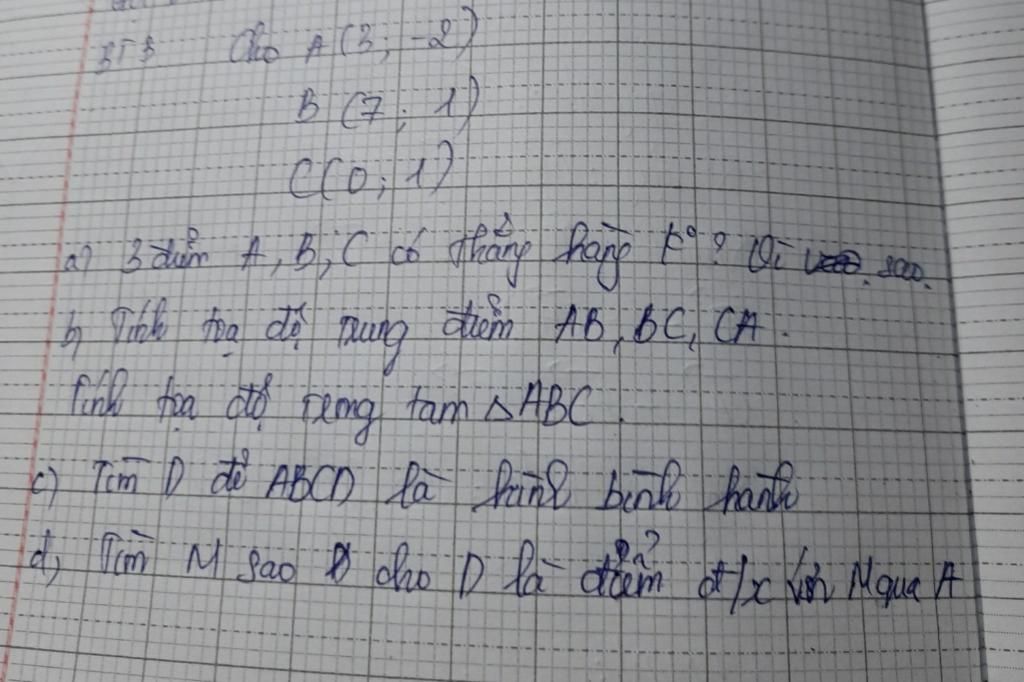 BT3 Cho A(3; -2)
B (7; 1)
C(0; 1)
a) 3 điểm A, B, C có thẳng hàng k°? Vì sao.
b) Tính toạ độ trung điểm AB, BC, CA.
Tính toạ độ trọng tam △ABC.
c) Tìm D để ABCD là hình bình hành
d) Tìm M sao cho D là điểm đ/x với M qua A